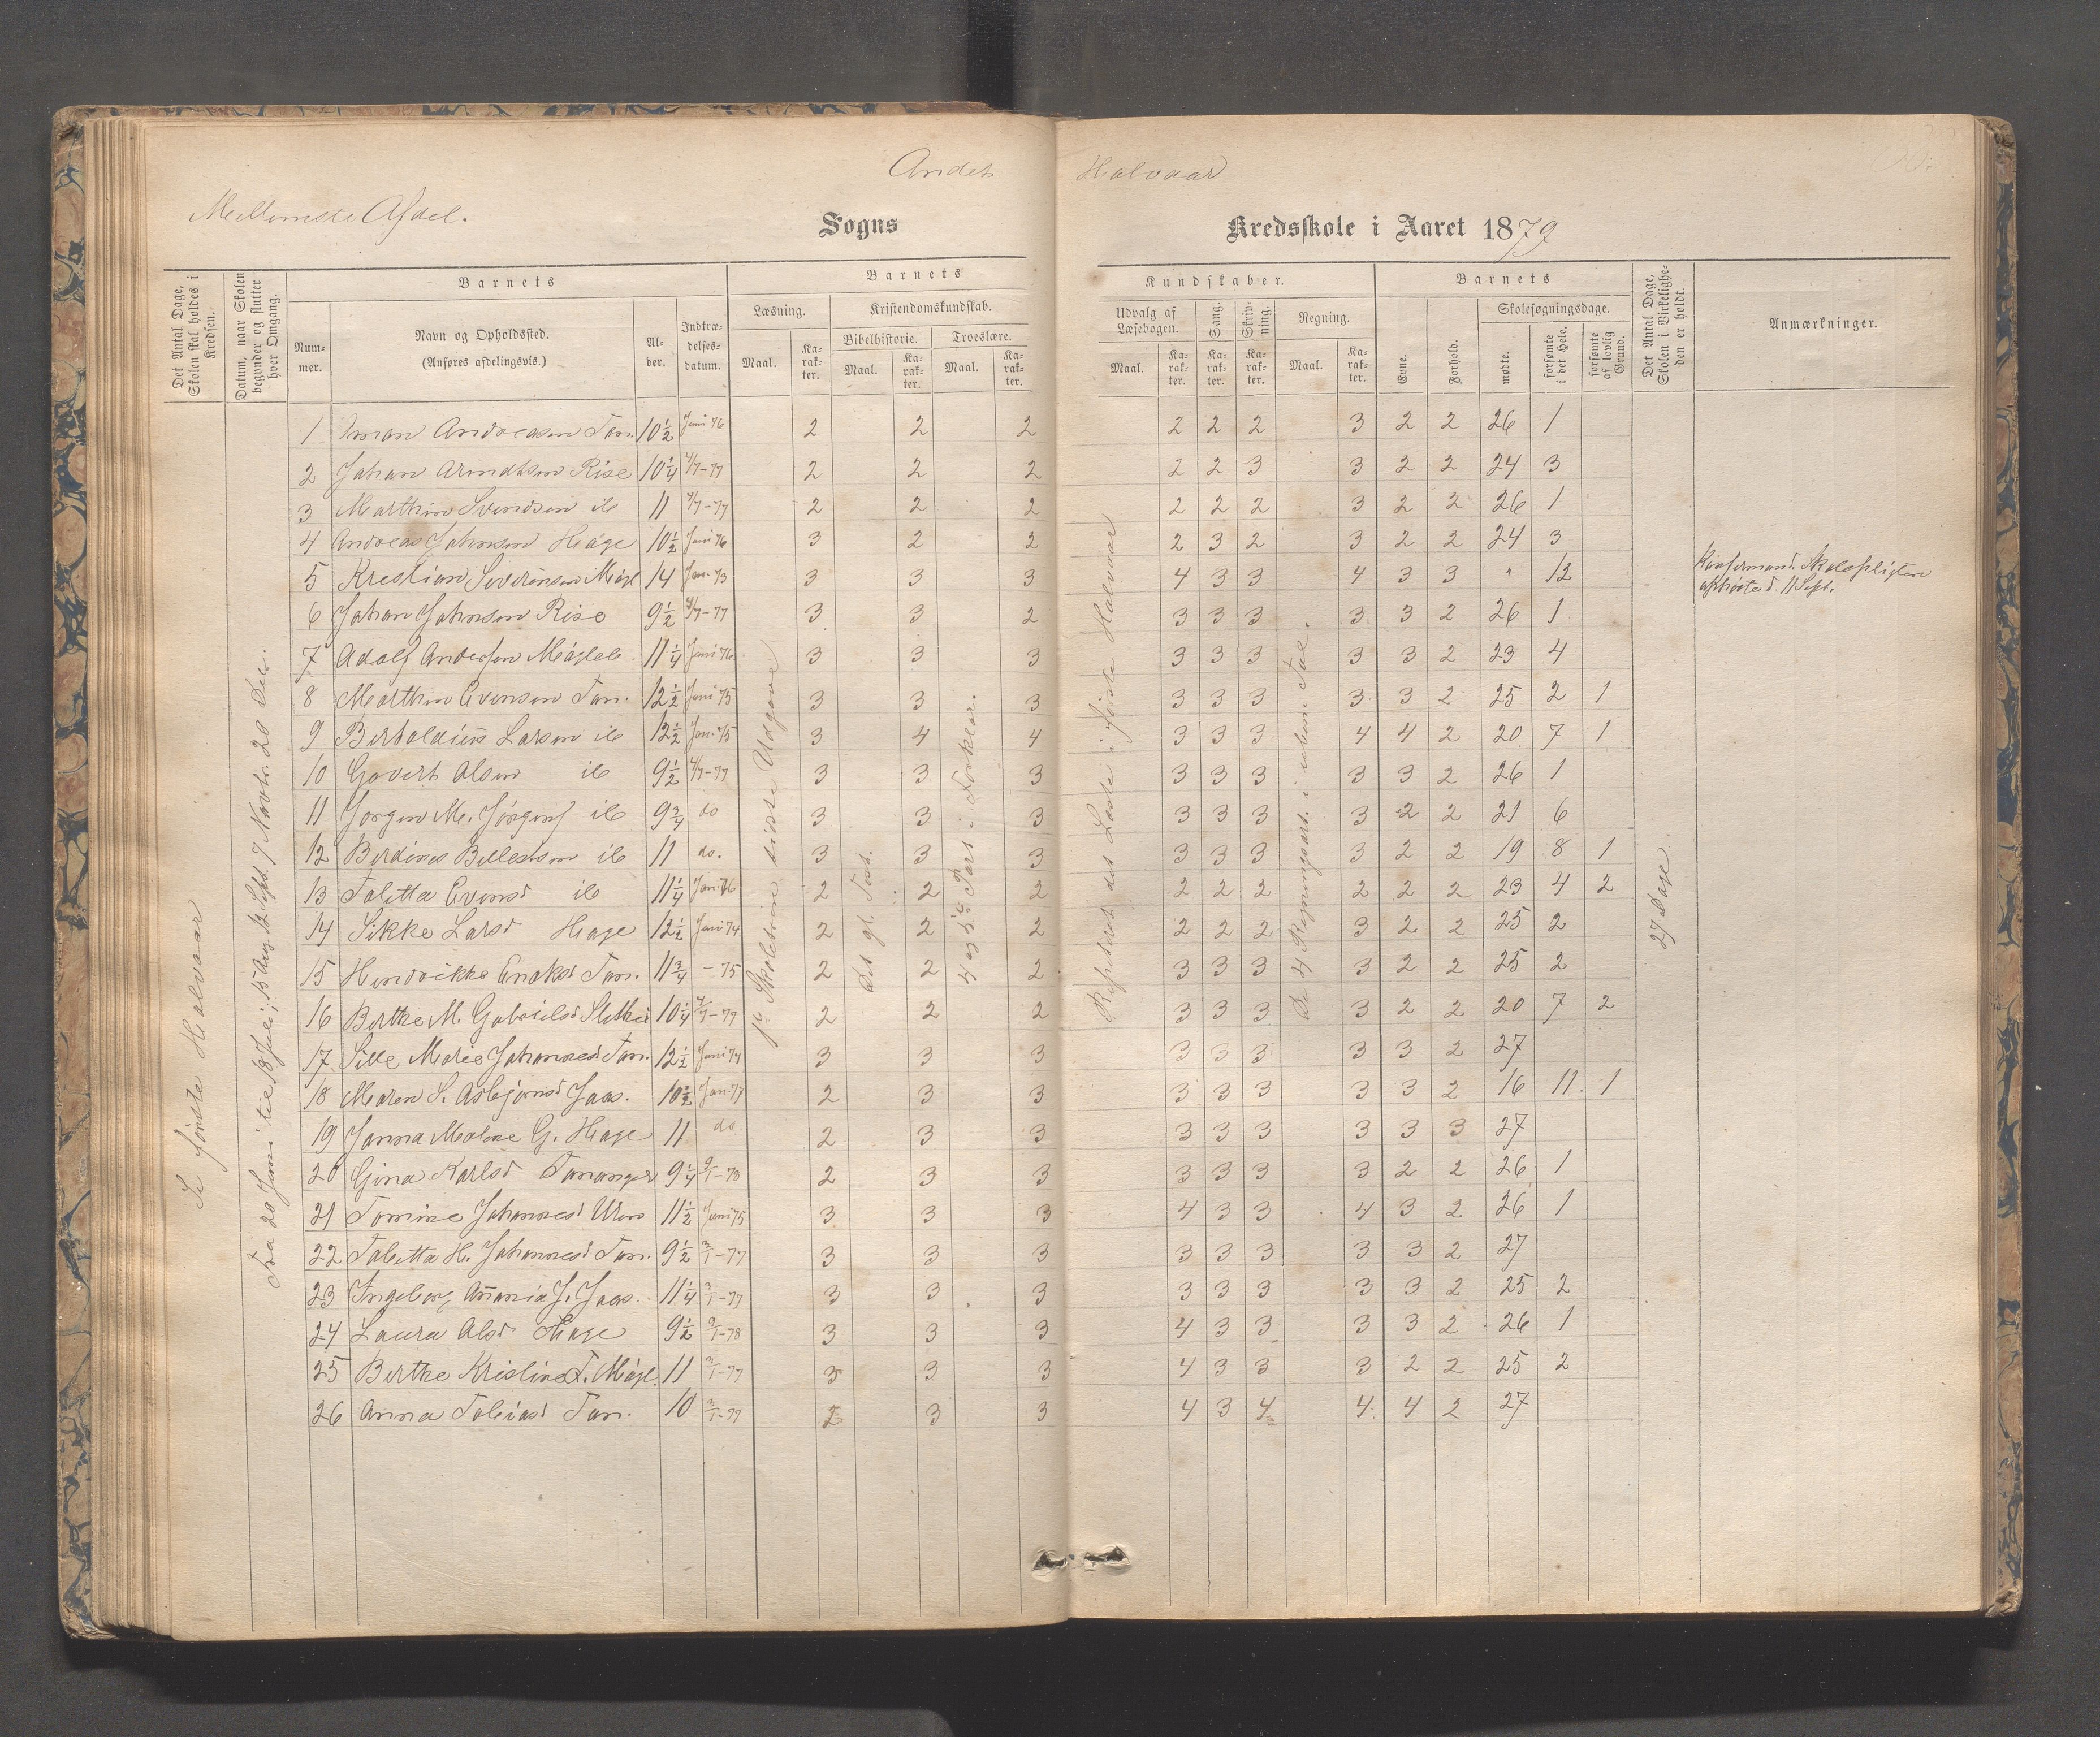 Andet Halvaar
Mellemste Afdel.
Sogns Kredsskole i Aaret 1879
Det Antal Dage, Skolen skal holdes i Kredsen.
Datum, naar Skolen begynder og slutter hver Omgang.
Barnets
Barnets
Kundskaber.
Barnets
Det Antal Dage, Skolen i Virkeligheden er holdt.
Anmærkninger.
Nummer.
Navn og Opholdssted.
(Anføres afdelingsvis.)
Alder.
Indtrædelsesdatum.
Læsning.
Kristendomskundskab.
Bibelhistorie.
Troeslære.
Maal.
Karakter.
Maal.
Karakter.
Maal.
Karakter.
Udvalg af Læsebogen.
Sang.
Skrivning.
Regning.
Maal.
Karakter.
Karakter.
Karakter.
Maal.
Karakter.
Evne.
Forhold.
Skolesøgningsdage.
mødte.
forsømte i det Hele.
forsømte af lovlig Grund.
Se første Halvaar
Fra 20 Juni til 18 Juli; 15 Aug 12 Sept. 7 Novbr. 20 Dec.
Skoletrin sidste Udgave
Det gl. Test.
4 og 5te Part i Forklar.
Repeteret det Læste i første Halvaar
De 4 Regningsart. i uben. Tal.
27 Dage
1 Andreasen Tan. 10½ Juni 76 2 2 2 2 2 2 3 2 2 26 1
2 Johan Arndtsen Rise 10¼ 4/7-77 2 2 2 2 2 3 3 2 2 24 3
3 Marthin Svendsen ib 11 4/7-77 2 2 2 2 2 2 3 2 2 26 1
4 Andreas Johnsen Hage 10½ Juni 76 3 2 2 2 3 2 3 2 2 24 3
5 Kristian Severinsen Mågl 14 Jan. 73 3 3 3 4 3 3 4 3 3 " 12 Konfirmand. Skolepligten ophørte d. 11 Sept.
6 Johan Johnsen Rise 9½ 4/7-77 3 3 2 3 3 3 3 3 2 26 1
7 Adolf Andersen Mågleb 11¼ Juni 76 3 3 3 3 3 3 3 3 2 23 4
8 Marthin Evensen Tan. 12½ Juni 75 3 3 3 3 3 3 3 3 2 25 2 1
9 Bertoldius Larsen ib 12½ Jan. 75 3 4 4 3 3 3 4 4 2 20 7 1
10 Govert Olsen ib 9½ 4/7-77 3 3 3 3 3 3 3 3 2 26 1
11 Jørgen M. Jørgens ib 9¾ do 3 3 3 3 3 3 3 2 2 21 6
12 Berdines Bellesen ib 11 do. 3 3 3 3 3 3 3 2 2 19 8 1
13 Talitta Evensd ib 11¼ Jan. 76 2 2 2 2 2 2 2 2 2 23 4 2
14 Sikke Larsd Hage 12½ Juni 74 2 2 2 2 2 2 3 2 2 25 2
15 Hendrikke Enoksd Tan. 11¾ - 75 2 2 2 3 3 3 3 2 2 25 2
16 Berthe M. Gabrielsd 10¼ 4/7-77 2 2 2 3 3 3 3 2 2 20 7 2
17 Sille Marie Johannesd Tan. 12½ Juni 74 3 3 3 3 3 3 3 3 2 27
18 Maren S. Asbjørnsd Jaas. 10½ Jan. 77 2 3 3 3 3 3 3 3 2 16 11 1
19 Janna Malene G. Hage 11 do 2 3 3 3 3 3 3 3 3 27
20 Gina Karlsd Tananger 9¼ 9/1-78 2 3 3 3 3 3 3 2 2 26 1
21 Tomine Johannesd 11½ Juni 75 3 3 3 4 3 3 4 3 2 26 1
22 Tabitta H. Johannesd Tan. 9½ 3/1-77 3 3 3 3 3 3 3 3 2 27
23 Ingeborg J. Jaas. 11¼ 3/1-77 3 3 3 3 3 3 3 3 2 25 2
24 Laura Olsd Hage 9½ 9/1-78 3 3 3 4 3 3 3 3 2 26 1
25 Berthe Kristine T. Mågl. 11 3/1-77 3 3 3 4 3 3 3 2 2 25 2
26 Anna Tobiasd Tan. 10 3/1-77 2 3 3 4 3 4 4 4 2 27